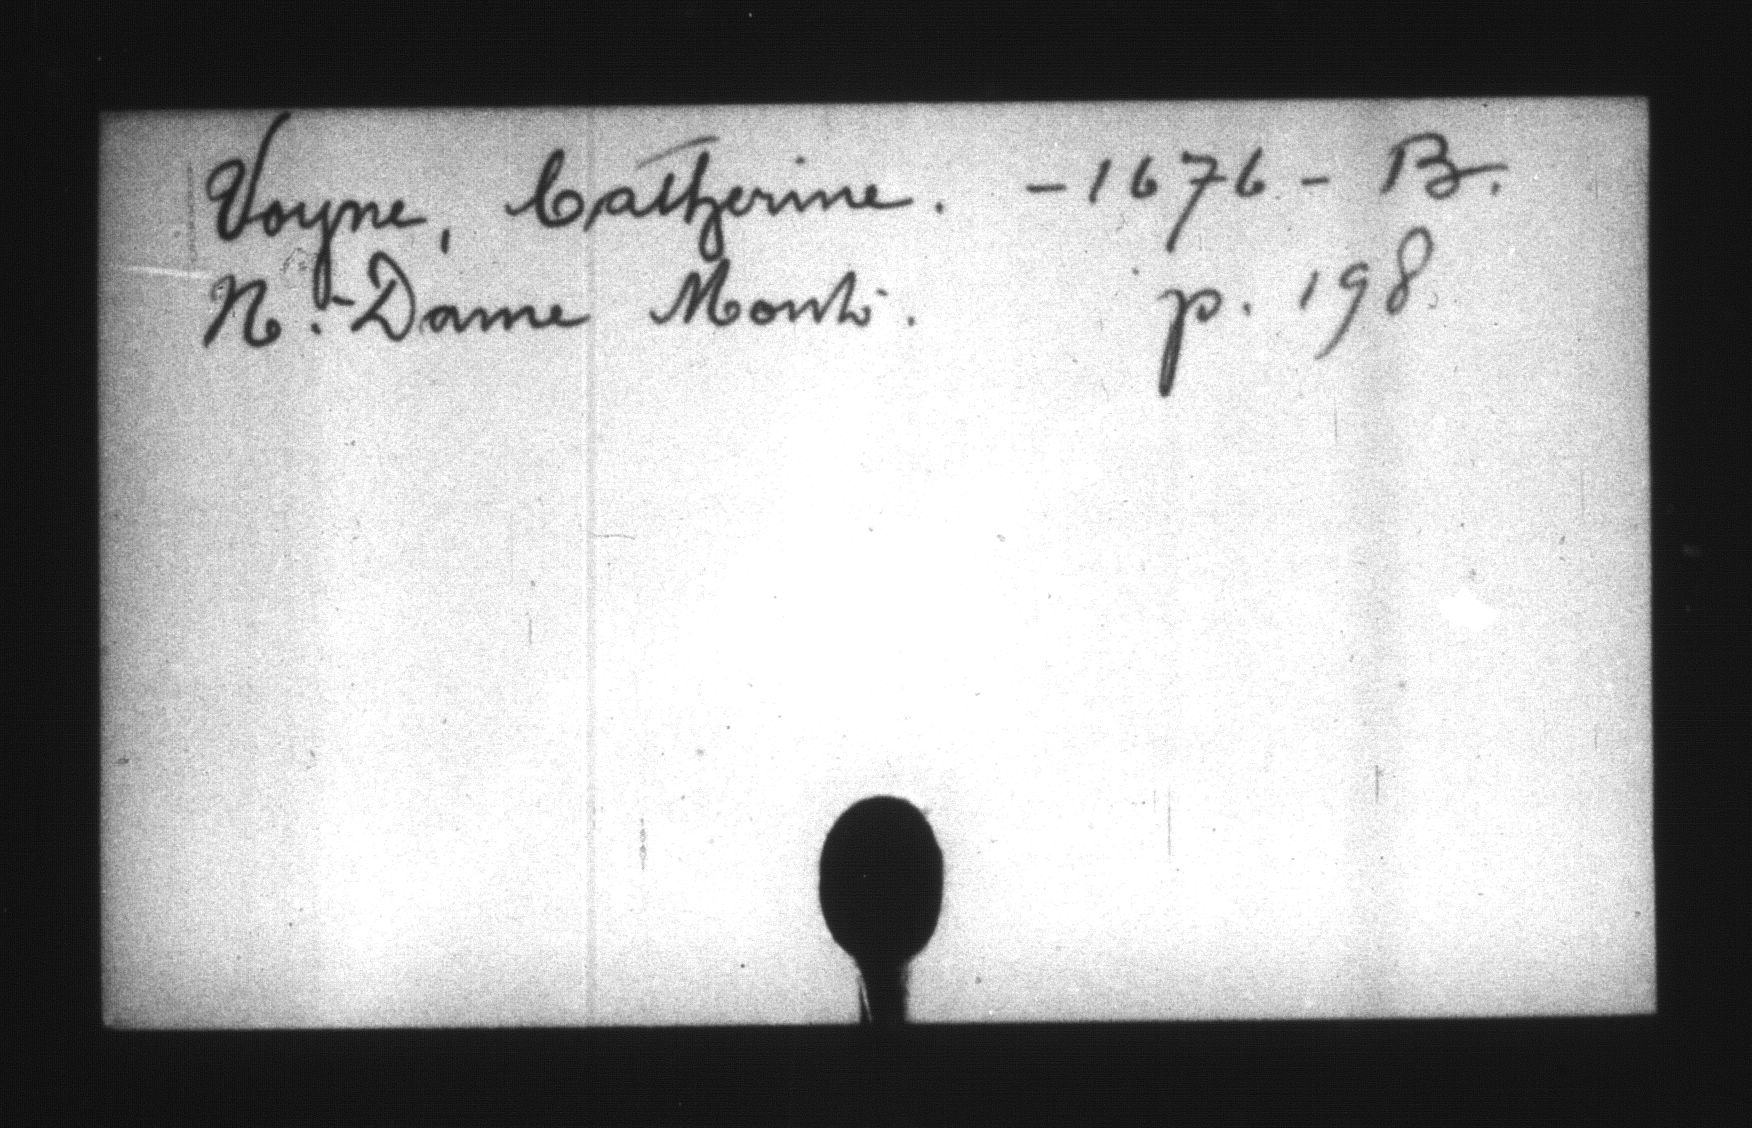 Voyne, Catherine. - 1676 - B.
N.-Dame Montr. p. 198